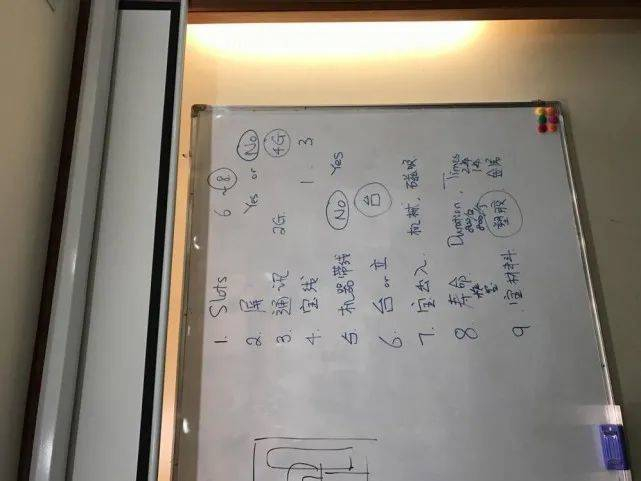 1. Slots 6 ~ 8
2. 屏 Yes or No
3. 通讯 2G. 4G
4. 宝线 1 . 3
5. 机器带线 No Yes
6. 台 or 立 台
7. 宝出入. 机械. 磁吸
8 寿命 Duration. Times
9. 宝材料. 塑胶 金属